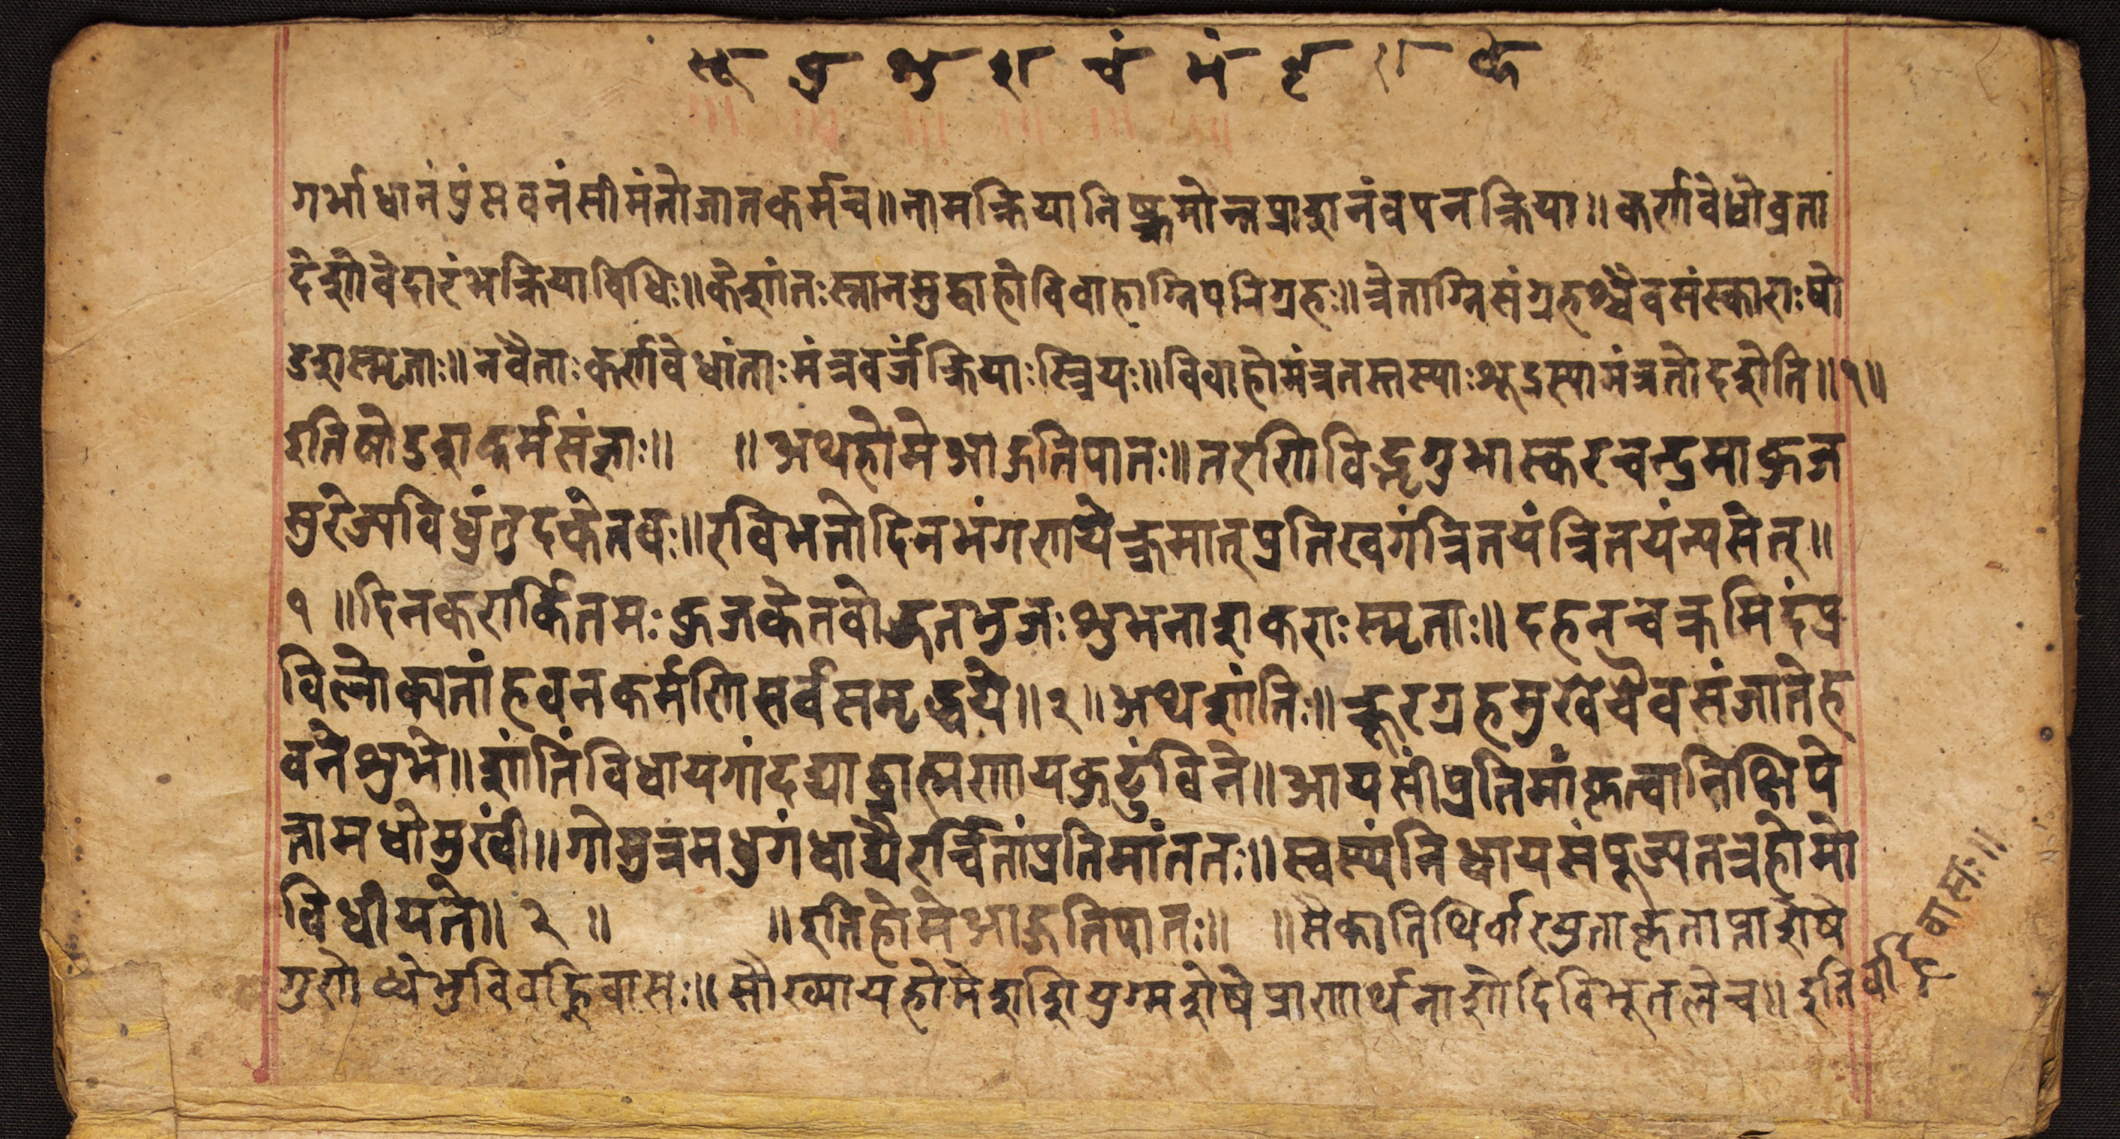 सू बु शु श चं मं बृ रा के
गर्भाधानं पुंसवनं सीमंतो जातकर्म च ॥ नामक्रिया निष्क्रमोन्नप्राशनं वपनक्रिया ॥ कर्णवेधो व्रता
देशो वेदारंभक्रियाविधिः ॥ केशांतः स्नानमुद्वाहो विवाहाग्निपरिग्रहः ॥ त्रेताग्निसंग्रहश्चैव संस्काराः षो
डश स्मृताः ॥ नवैताः कर्णवेधांताः मंत्रवर्जं क्रियाः स्त्रियः ॥ विवाहो मंत्रतस्तस्याः शूद्रस्यामंत्रतो दशेति ॥ १ ॥
इति षोडशकर्मसंज्ञाः ॥ ॥ अथ होमे आहुतिपातः ॥ तरणिविद्भृगुभास्करचन्द्रमाकुज
सुरेज्यविधुंतुदकेतवः ॥ रविभतो दिनभं गणयेत्क्रमात् प्रतिखगं त्रितयं त्रितयं न्यसेत् ॥
१ ॥ दिनकरार्कितमःकुजकेतवो हुतभुजः शुभनाशकराः स्मृताः ॥ दहनचक्रमिदं प्र
विलोक्यतां हवनकर्मणि सर्वसमृद्धये ॥ २ ॥ अथ शांतिः ॥ क्रूरग्रहमुखे चैव संजाते ह
वने शुभे ॥ शांतिं विधाय गां दद्याद्ब्राह्मणाय कुटुंविने ॥ आयसीं प्रतिमां कृत्वा निक्षिपे
त्तामधोमुखीं ॥ गोमुत्रमधुगंधाद्यैरर्चितां प्रतिमां ततः ॥ स्वस्थं निधाय संपूज्य तत्र होमो
विधीयते ॥ २ ॥ ॥ इति होमे आहुतिपातः ॥ ॥ सैका तिथिर्वारयुता कृताप्ता शेषे
गुणेभ्रे भुवि वह्निवासः ॥ सौख्याय होमे शशियुग्मशेषे प्राणार्थनाशो दिवि भूतले च ॥ इति वह्नि
वासः ॥